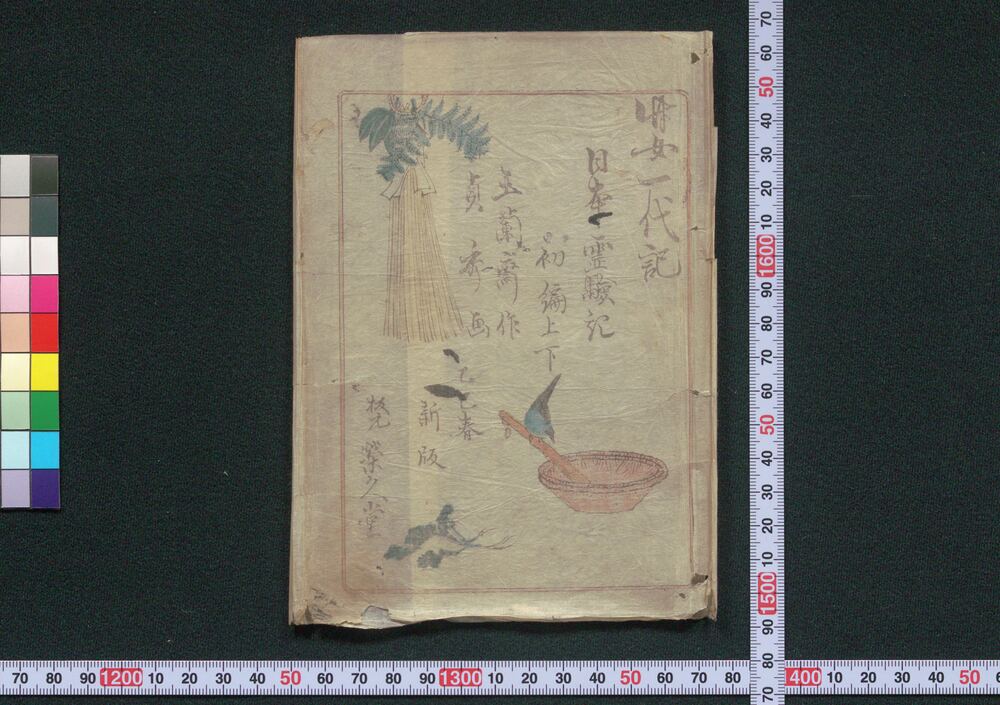 女一代記
日本霊験記
初編上下
玉蘭斎作
貞秀画
巳春
新版
板元 榮久堂
70 60 50 40 30 20 10 1600 90 80 70 60 50 40 30 20 10 1500 90 80 70
70 80 90 1200 10 20 30 40 50 60 70 80 90 1300 10 20 30 40 50 60 70 80 400 10 20 30 40 50 6